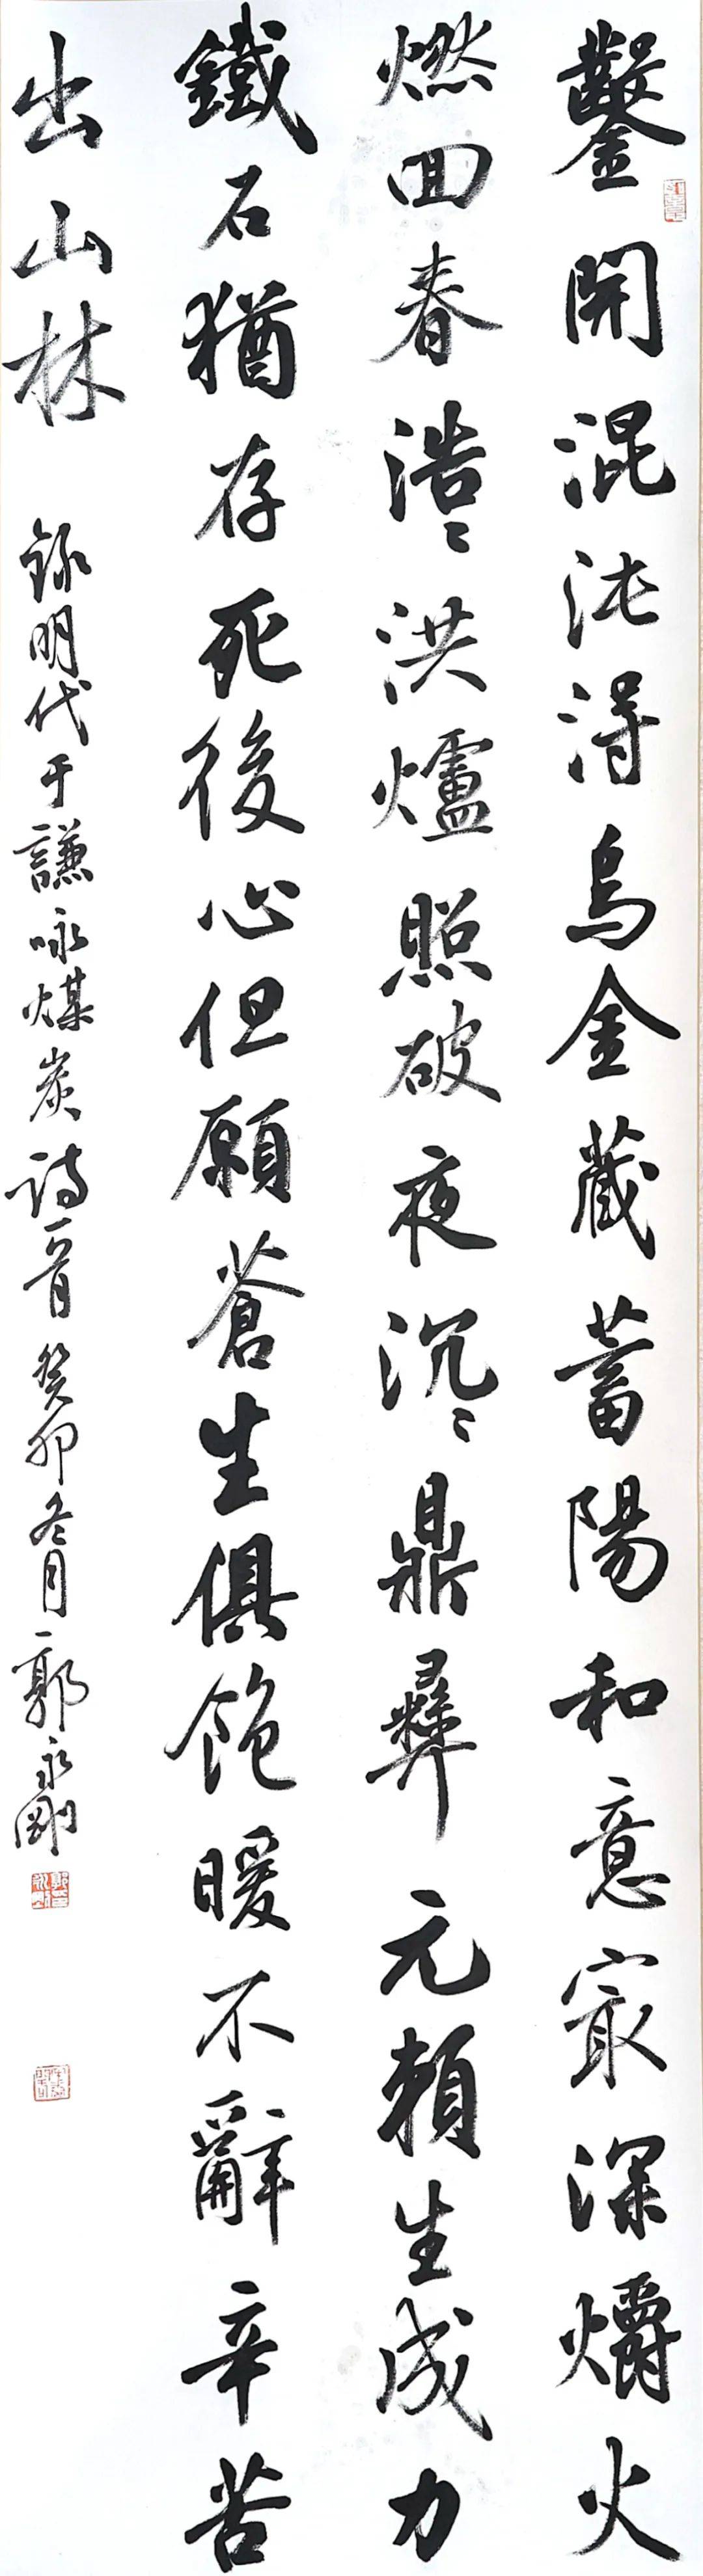 鑿開混沌得烏金藏蓄陽和意㝡深爝火
燃回春浩〻洪爐照破夜沉〻鼎彝元賴生成力
鐵石猶存死後心但願蒼生俱飽暖不辭辛苦
出山林
錄明代于謙咏煤炭詩一首癸卯冬月郭永剛